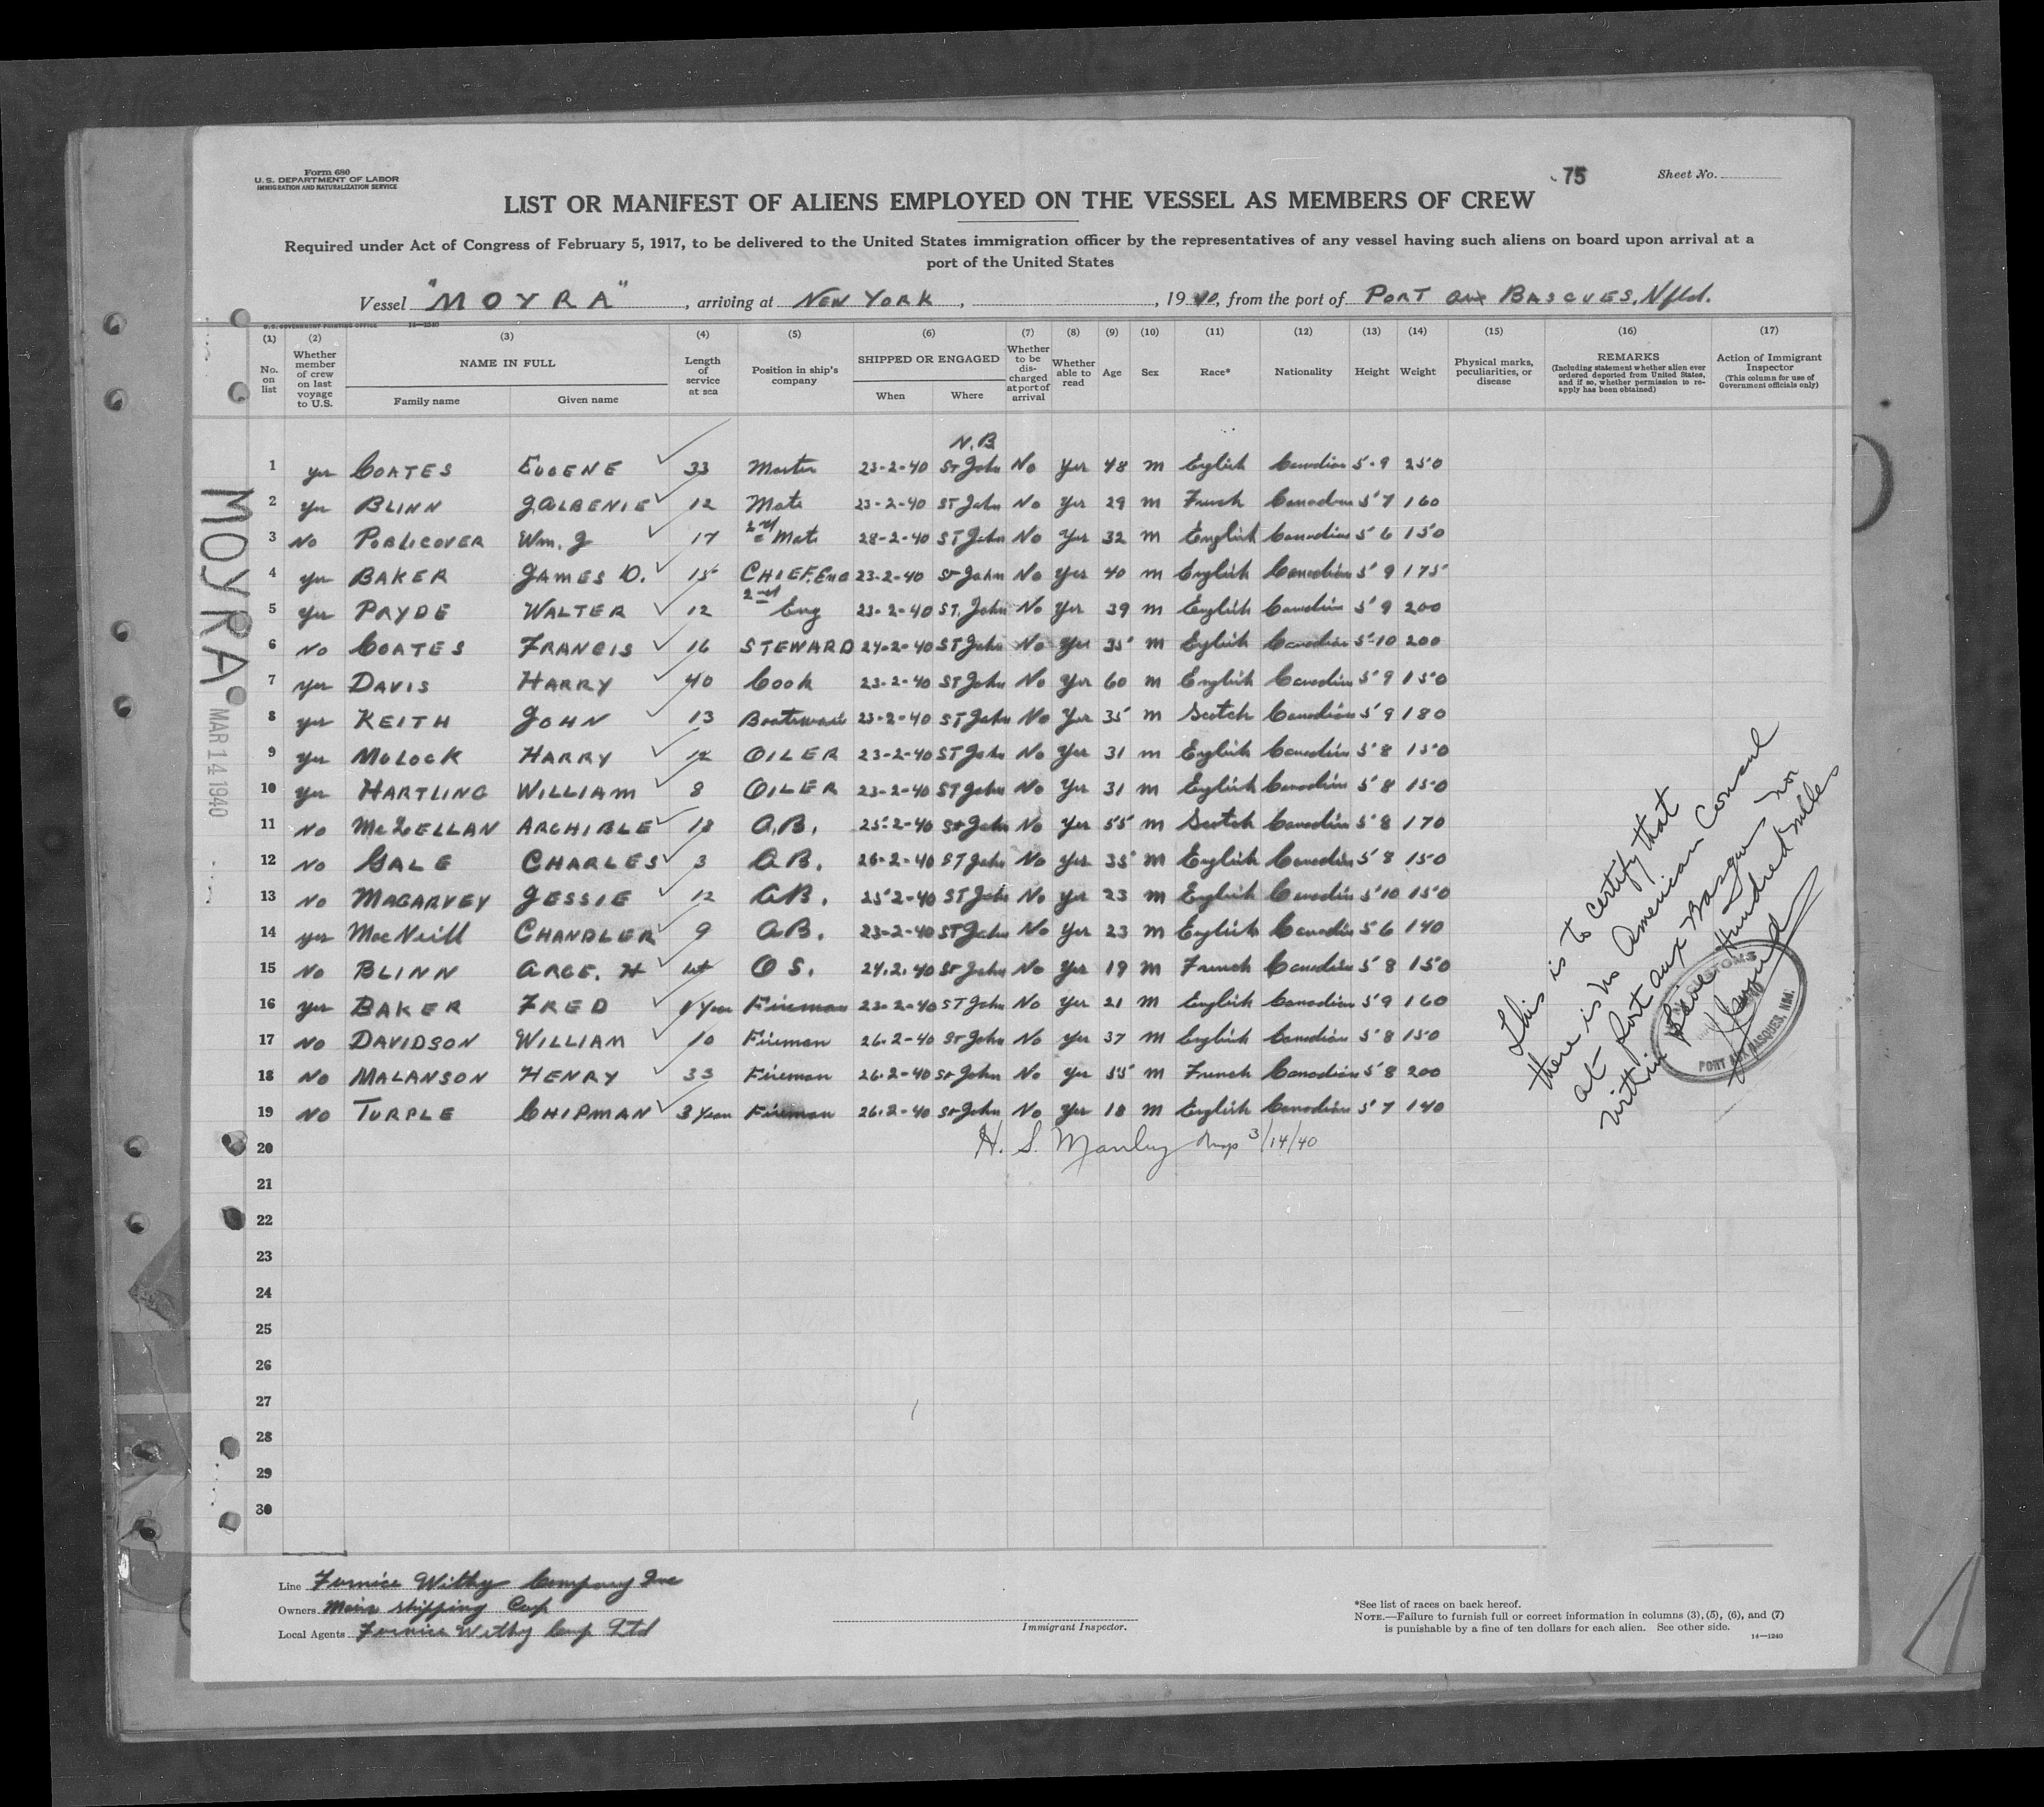 Form 680
U. S. DEPARTMENT OF LABOR
IMMIGRATION AND NATURALIZATION SERVICE
75
Sheet No.
LIST OR MANIFEST OF ALIENS EMPLOYED ON THE VESSEL AS MEMBERS OF CREW
Required under Act of Congress of February 5, 1917, to be delivered to the United States immigration officer by the representatives of any vessel having such aliens on board upon arrival at a
port of the United States
Vessel "MOYRA", arriving at NEW YORK, , 1940, from the port of PORT aux BASQUES, Nfld.
U. S. GOVERNMENT PRINTING OFFICE 14—1240
(1) No. on list
(2) Whether member of crew on last voyage to U.S.
(3) NAME IN FULL
Family name Given name
(4) Length of service at sea
(5) Position in ship's company
(6) SHIPPED OR ENGAGED
When Where
(7) Whether to be discharged at port of arrival
(8) Whether able to read
(9) Age
(10) Sex
(11) Race*
(12) Nationality
(13) Height
(14) Weight
(15) Physical marks, peculiarities, or disease
(16) REMARKS (Including statement whether alien ever ordered deported from United States, and if so, whether permission to reapply has been obtained)
(17) Action of Immigrant Inspector (This column for use of Government officials only)
N.B
1 yes COATES EUGENE 33 Master 23-2-40 St John No yes 48 m English Canadian 5-9 250
2 yes BLINN 12 Mate 23-2-40 ST John No yes 29 m French Canadian 5'7 160
3 No Wm. J 17 2nd Mate 28-2-40 ST John No yes 32 m English Canadian 5'6 150
4 yes BAKER JAMES D. 15 CHIEF. ENG 23-2-40 St John No yes 40 m English Canadian 5'9 175
5 yes PRYDE WALTER 12 2nd Eng 23-2-40 ST. John No yes 39 m English Canadian 5'9 200
6 No COATES FRANCIS 16 STEWARD 24-2-40 ST John No yes 35 m English Canadian 5'10 200
7 yes DAVIS HARRY 40 Cook 23-2-40 ST John No yes 60 m English Canadian 5'9 150
8 yes KEITH JOHN 13 Boatswain 23-2-40 ST John No yes 35 m Scotch Canadian 5'9 180
9 yes HARRY 12 OILER 23-2-40 ST John No yes 31 m English Canadian 5'8 150
10 yes HARTLING WILLIAM 8 OILER 23-2-40 ST John No yes 31 m English Canadian 5'8 150
11 No McLELLAN ARCHIBLE 18 A.B. 25-2-40 St John No yes 55 m Scotch Canadian 5'8 170
12 No GALE CHARLES 3 A B. 26-2-40 ST John No yes 35 m English Canadian 5'8 150
13 No MAGARVEY JESSIE 12 A B. 25-2-40 ST John No yes 23 m English Canadian 5'10 150
14 yes MacNeill CHANDLER 9 A B. 23-2-40 ST John No yes 23 m English Canadian 5'6 140
15 No BLINN H 1st O S. 24.2.40 St John No yes 19 m French Canadian 5'8 150
16 yes BAKER FRED 1 year Fireman 23-2-40 ST John No yes 21 m English Canadian 5'9 160
17 No DAVIDSON WILLIAM 10 Fireman 26-2-40 St John No yes 37 m English Canadian 5'8 150
18 No MALANSON HENRY 33 Fireman 26.2-40 St John No yes 55 m French Canadian 5'8 200
19 No TURPLE CHIPMAN 3 years Fireman 26.2-40 St John No yes 18 m English Canadian 5'7 140
20
H. S. Manley 3/14/40
21
22
23
24
25
26
27
28
29
30
MOYRA
MAR 14 1940
This is to certify that
there is no American Consul
at Port aux Basques nor
within five Hundred miles
CUSTOMS
PORT AUX BASQUES, Nfld.
Line Furniss Withy Company Inc
Owners shipping Corp
Local Agents Furniss Withy Comp Ltd
Immigrant Inspector.
*See list of races on back hereof.
NOTE.—Failure to furnish full or correct information in columns (3), (5), (6), and (7)
is punishable by a fine of ten dollars for each alien. See other side.
14—1240